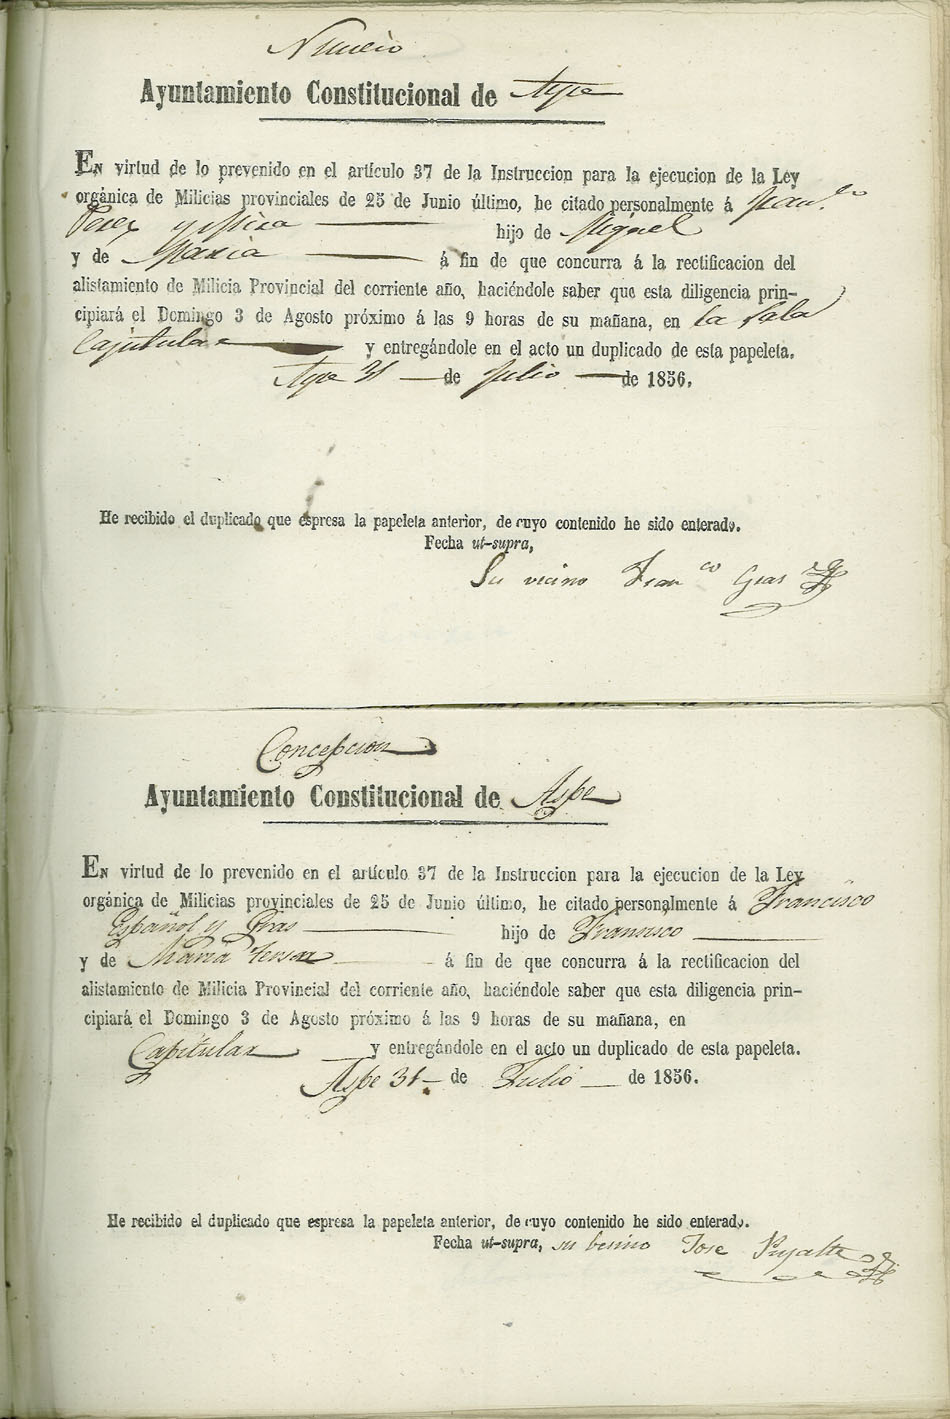 Nuncio
Ayuntamiento Constitucional de Aspe
EN virtud de lo prevenido en el artículo 37 de la Instruccion para la ejecucion de la Ley
orgánica de Milicias provinciales de 25 de Junio último, he citado personalmente á Fran.co
Perez y Mira hijo de Miguel
y de Maria á fin de que concurra á la rectificacion del
alistamiento de Milicia Provincial del corriente año, haciéndole saber que esta diligencia prin-
cipiará el Domingo 3 de Agosto próximo á las 9 horas de su mañana, en la Sala
Capitular y entregándole en el acto un duplicado de esta papeleta.
Aspe 31 de Julio de 1856.
He recibido el duplicado que espresa la papeleta anterior, de cuyo contenido he sido enterado.
Fecha ut-supra,
Su vecino Fran co Gras
Concepcion
Ayuntamiento Constitucional de Aspe
EN virtud de lo prevenido en el artículo 37 de la Instruccion para la ejecucion de la Ley
orgánica de Milicias provinciales de 25 de Junio último, he citado personalmente á Francisco
Español y Gras hijo de Francisco
y de Maria Teresa á fin de que concurra á la rectificacion del
alistamiento de Milicia Provincial del corriente año, haciéndole saber que esta diligencia prin-
cipiará el Domingo 3 de Agosto próximo á las 9 horas de su mañana, en
Capitular y entregándole en el acto un duplicado de esta papeleta.
Aspe 31 de Julio de 1856.
He recibido el duplicado que espresa la papeleta anterior, de cuyo contenido he sido enterado.
Fecha ut-supra, su besino Jose